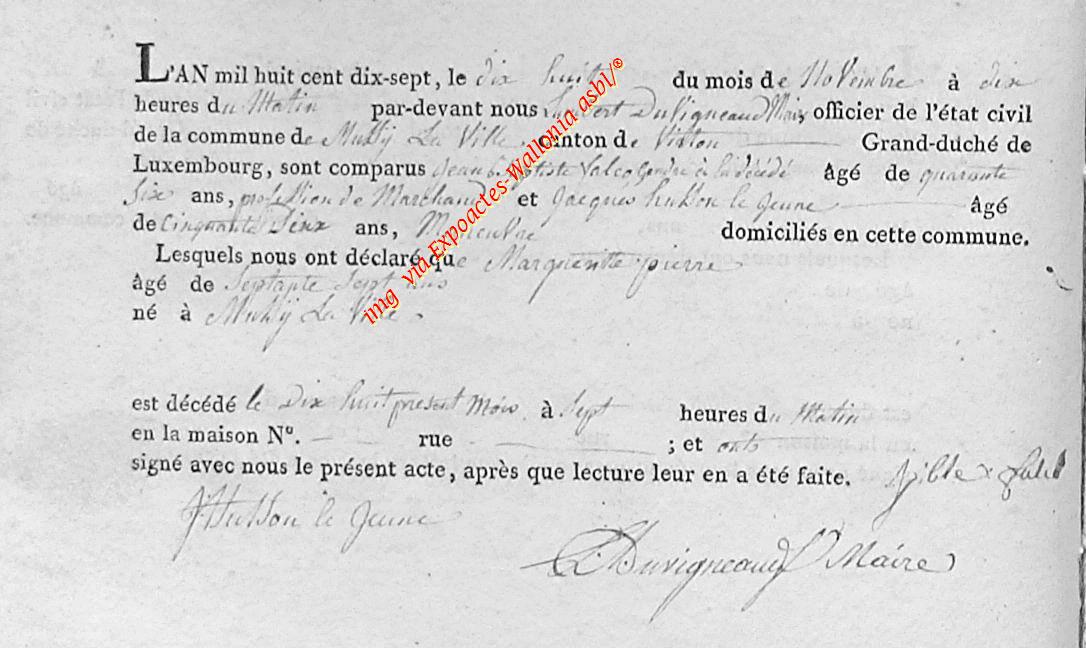 L'AN mil huit cent dix-sept, le dix huit du mois de Novembre à dix
heures du Matin par-devant nous Duvigneaud Maire officier de l'état civil
de la commune de Mussy La Ville canton de Virton Grand-duché de
Luxembourg, sont comparus Jean Baptiste gendre à la décédé âgé de quarante
six ans, profession de Marchand et Jacques husson le jeune âgé
de Cinquante ans, Manoeuvre domiciliés en cette commune.
Lesquels nous ont déclaré que Margueritte pierre
âgé de Septante Sept ans
né à Mussy La Ville.
est décédé le Dix huit present Mois à Sept heures du Matin
en la maison N°. rue ; et onts
signé avec nous le présent acte, après que lecture leur en a été faite.
J Husson le Jeune
Duvigneaud Maire
img via Expoactes-Wallonia asbl/®